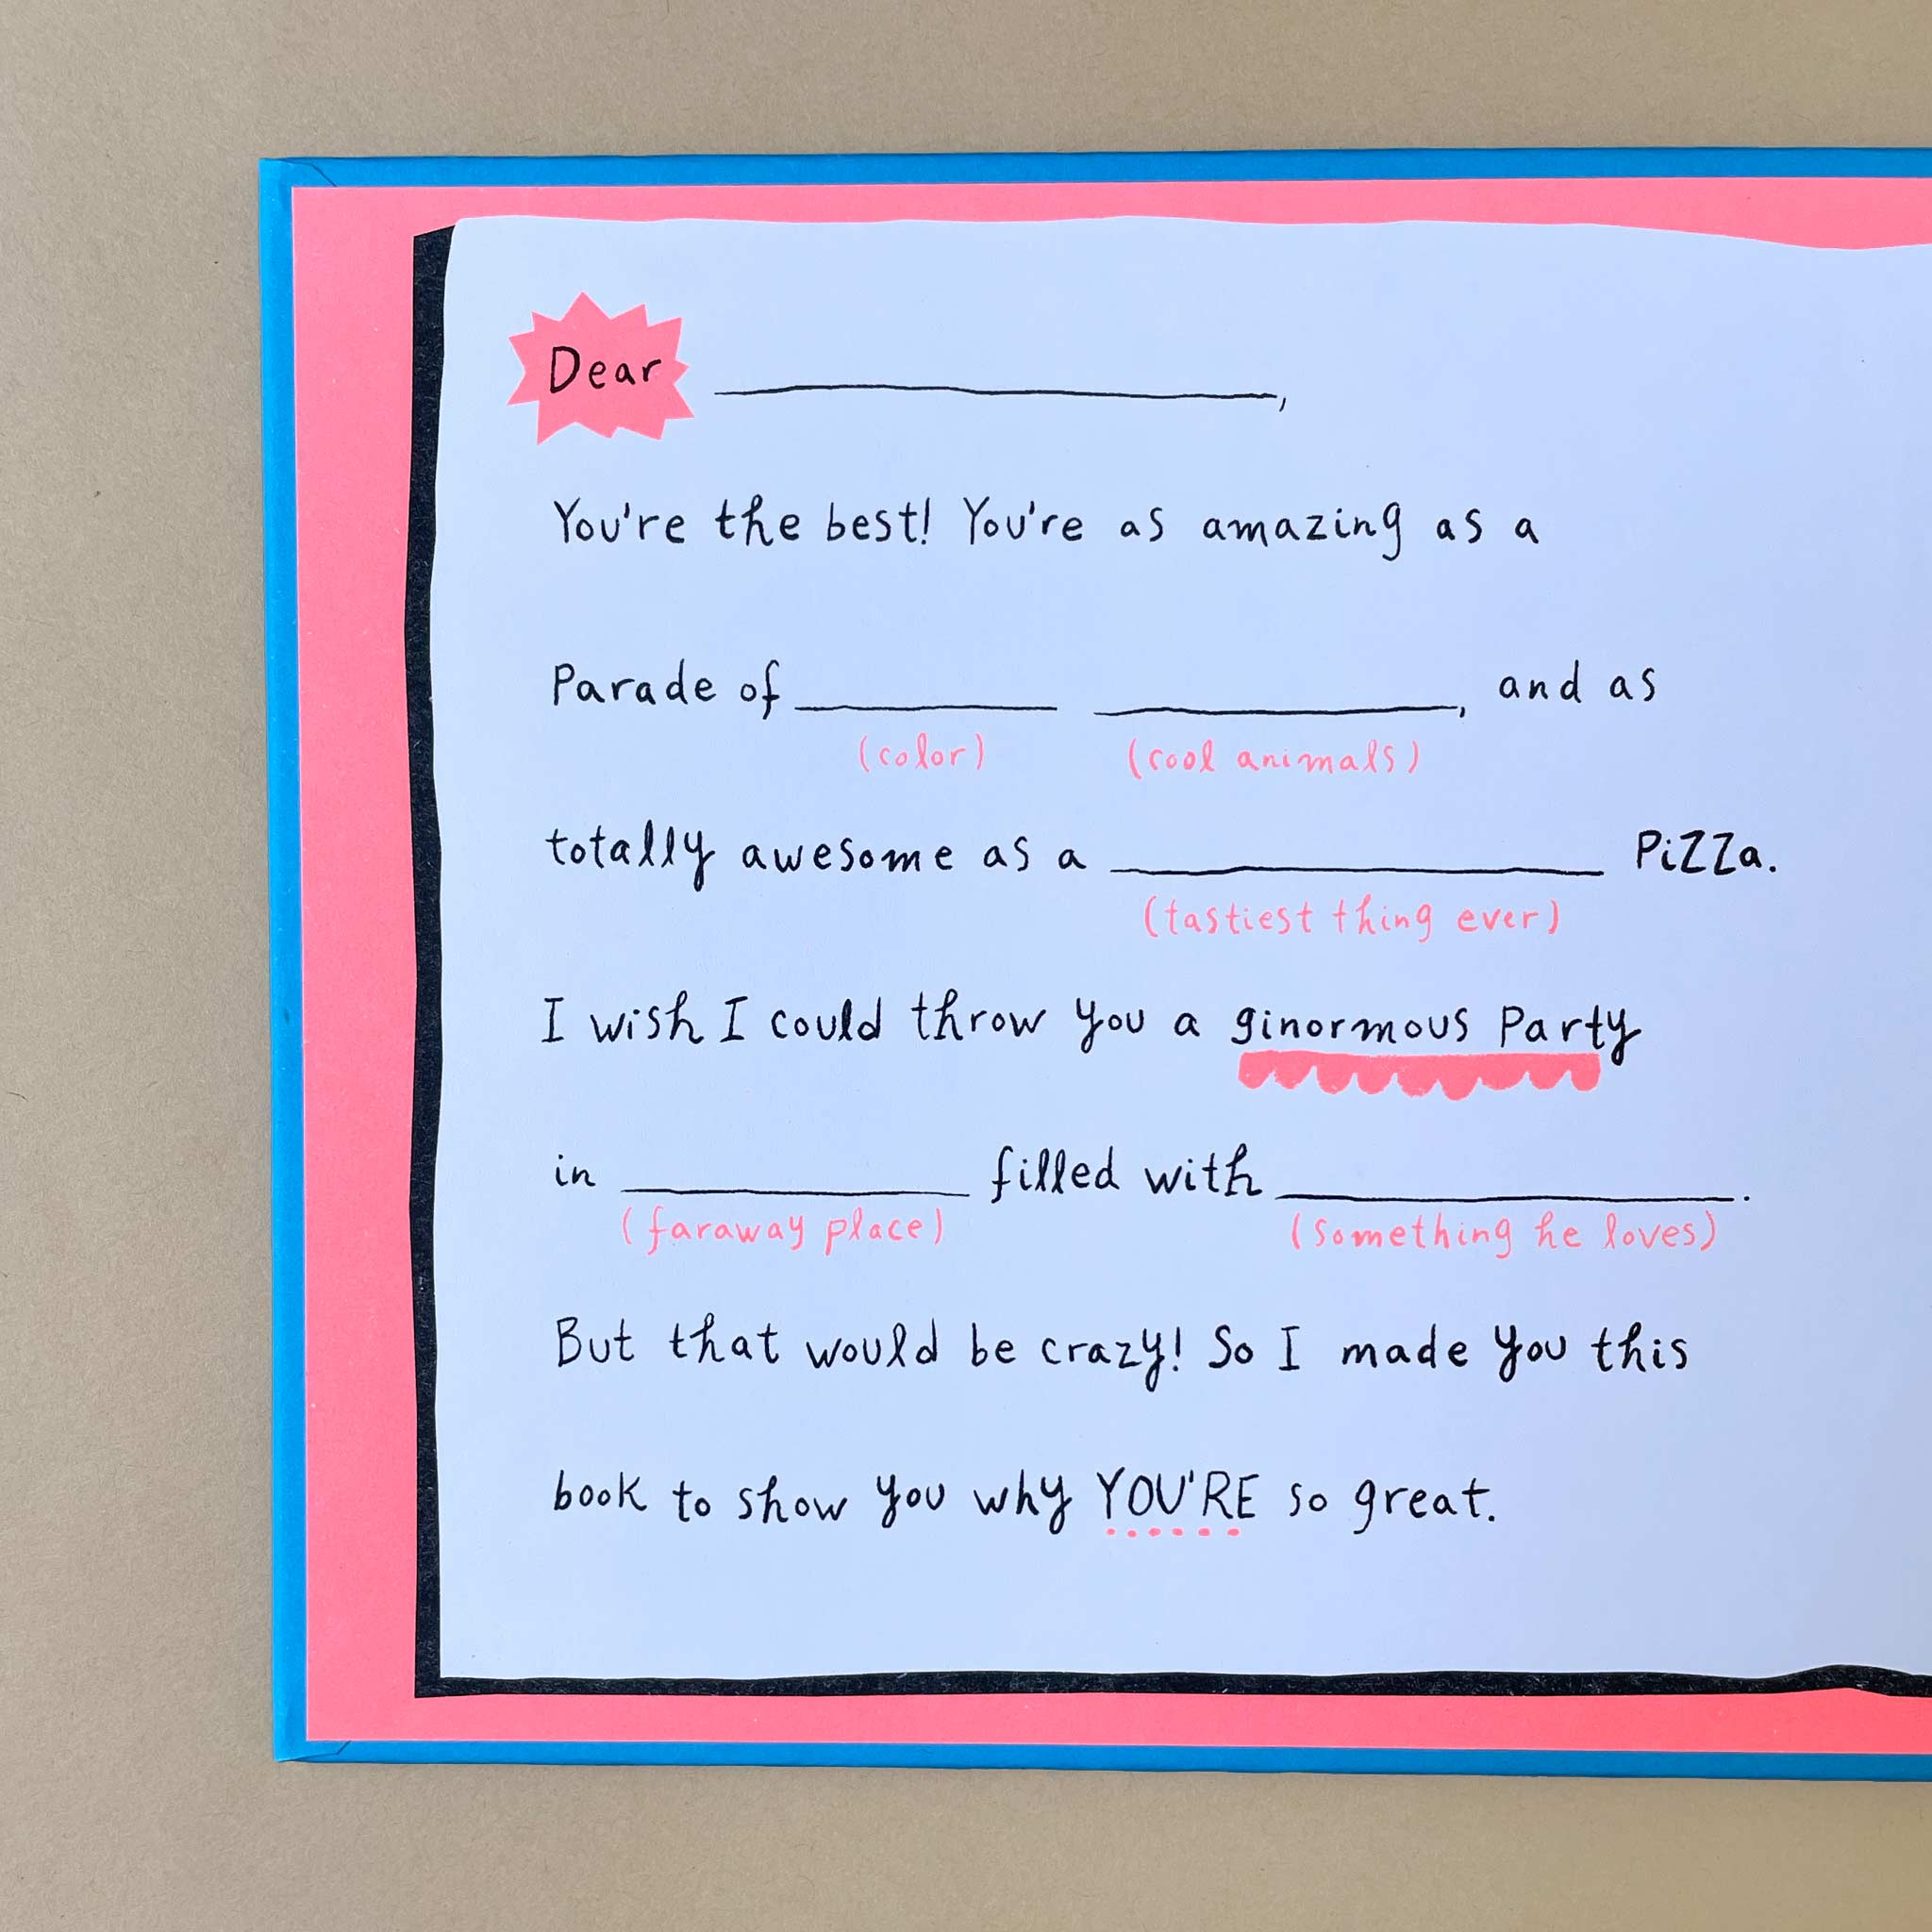 Dear ____________,
You're the best! You're as amazing as a
Parade of ________ ____________, and as
(color) (cool animals)
totally awesome as a ________________ PiZZa.
(tastiest thing ever)
I wish I could throw you a ginormous Party
in ____________ filled with ________________.
(faraway place) (something he loves)
But that would be crazy! So I made you this
book to show you why YOU'RE so great.